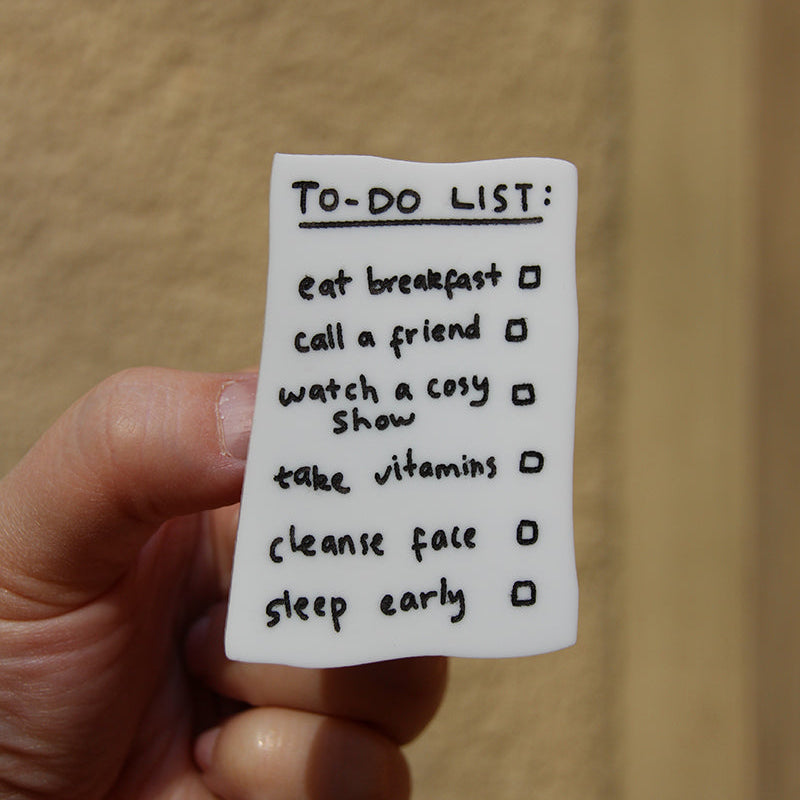 TO-DO LIST:
eat breakfast
call a friend
watch a cosy
show
take vitamins
cleanse face
sleep early